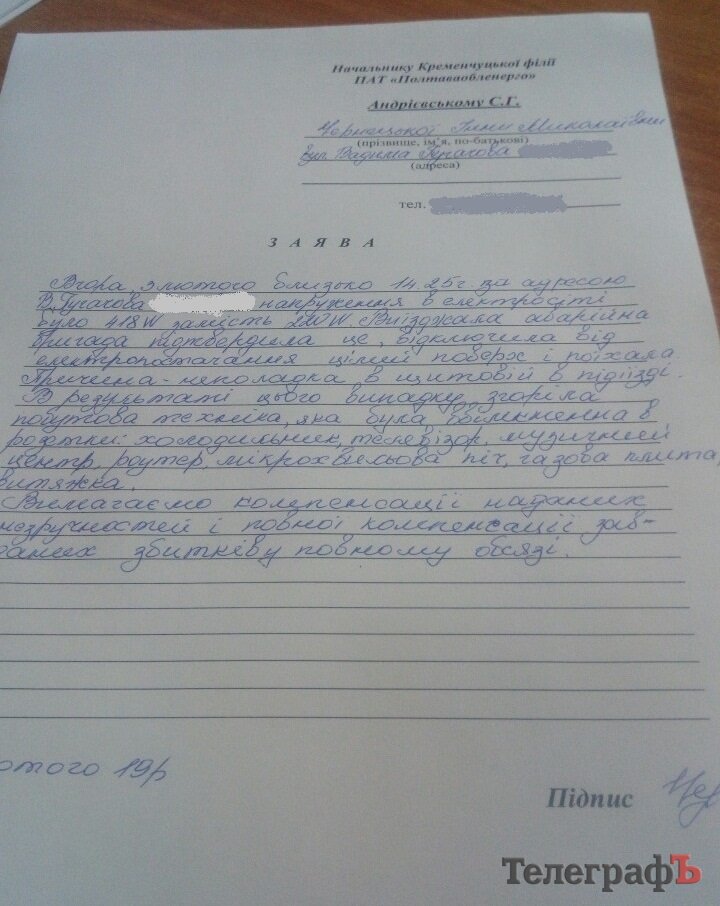 Начальнику Кременчуцької філії
ПАТ «Полтаваобленерго»
Андрієвському С.Г.
Чернецької Інни Миколаївни
(прізвище, ім'я, по-батькові)
вул. Вадима Пугачова
(адреса)
тел.
З А Я В А
Вчора, 3 лютого близько 14 25 г. за адресою
В. Пугачова напруження в електросіті
було 418W замість 220W. Виїзджала аварійна
бригада підтвердила це, відключила від
електропостачання цілий поверх і поїхала
Причина - неполадка в щитовій в підїзді.
В результаті цього випадку згоріла
побутова техніка, яка була ввімкненна в
розетки: холодильник, телевізор, музичний
центр, роутер, мікрохвильова піч, газова плита,
витяжка.
Вимагаємо компенсації наданих
незручностей і повної компенсації зав-
даних збитків у повному обсязі.
ютого 19р
Підпис
ТелеграфЪ